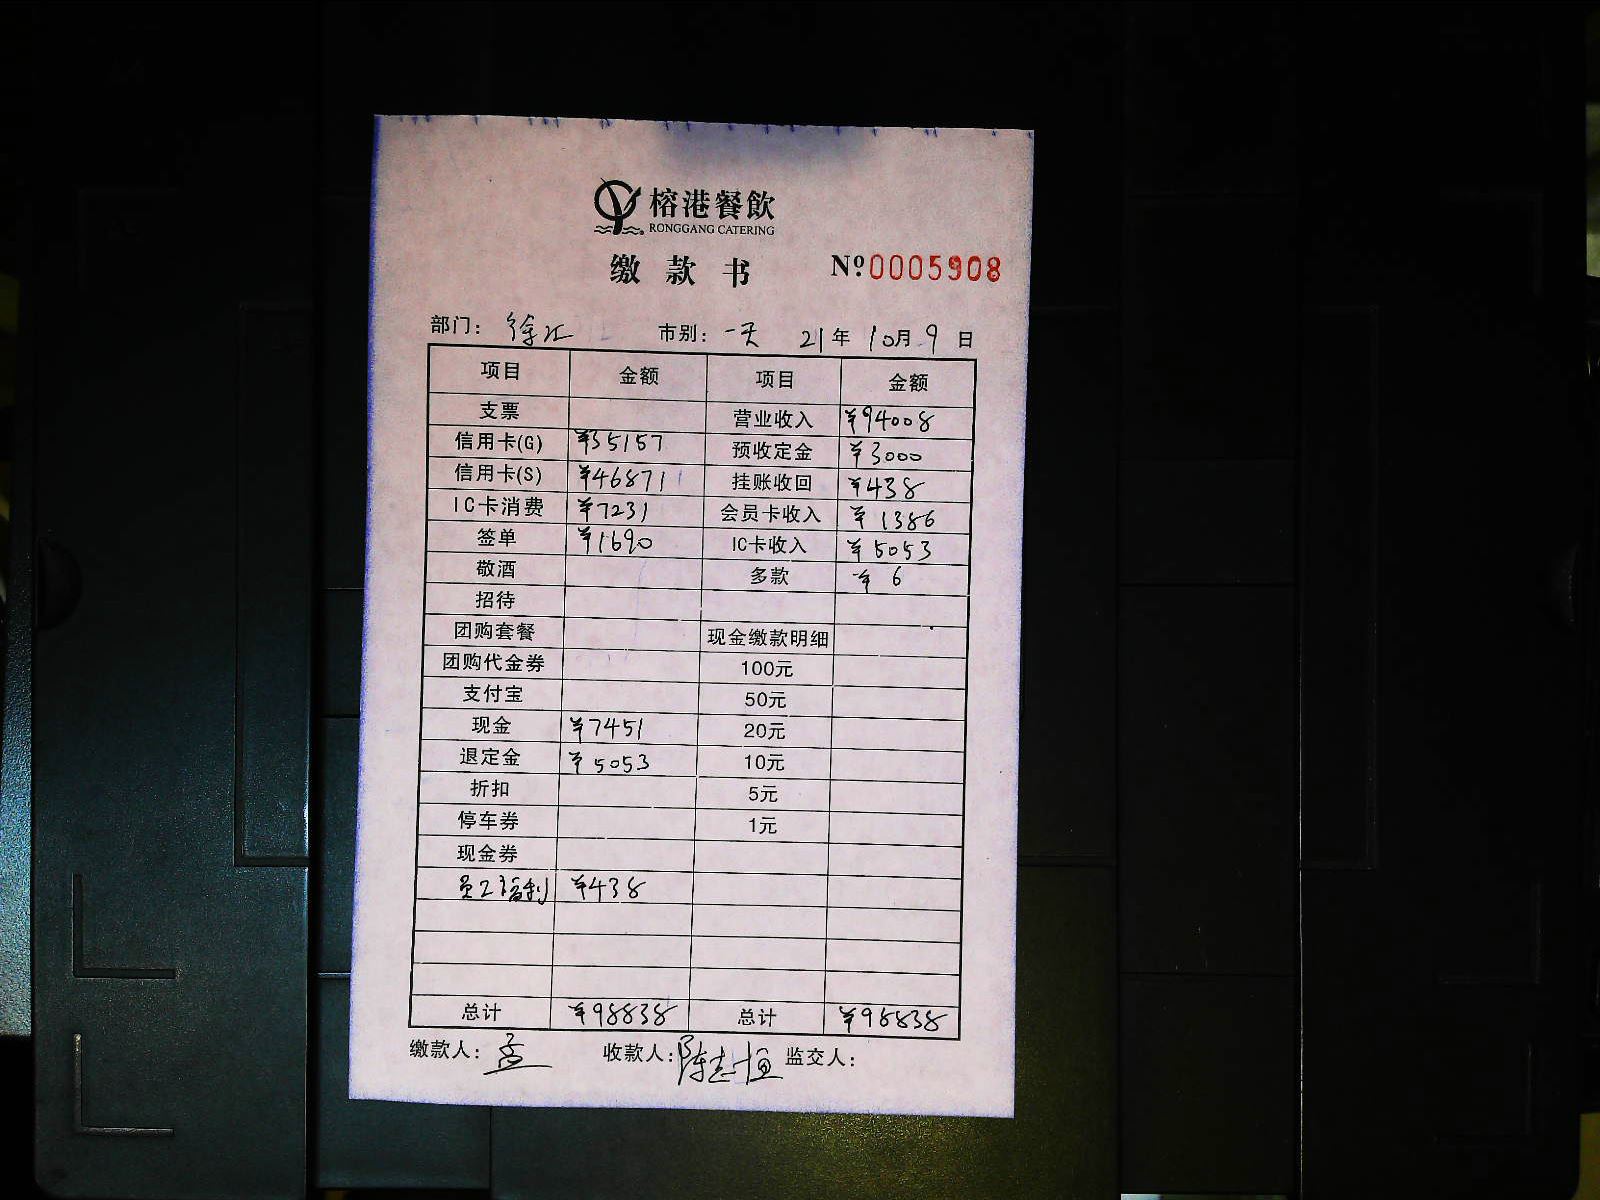 榕港餐飲
RONGGANG CATERING
缴款书 Nº 0005908
部门: 徐汇 市别: 一天 21年10月9日
项目 金额 项目 金额
支票 营业收入 ¥94008
信用卡(G) ¥35157 预收定金 ¥3000
信用卡(S) ¥46871 挂账收回 ¥438
IC卡消费 ¥7231 会员卡收入 ¥1386
签单 ¥1690 IC卡收入 ¥5053
敬酒 多款 ¥6
招待
团购套餐 现金缴款明细
团购代金券 100元
支付宝 50元
现金 ¥7451 20元
退定金 ¥5053 10元
折扣 5元
停车券 1元
现金券
员工福利 ¥438
总计 ¥98838 总计 ¥98838
缴款人: 收款人: 陈志恒 监交人: